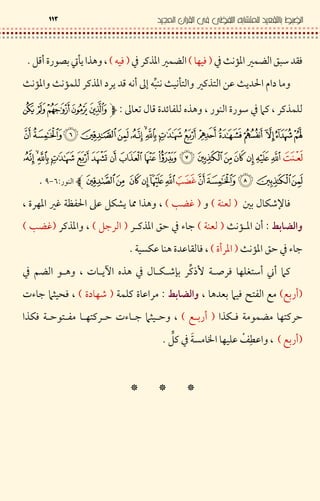 الضبط بالتقعيد للمتشابه اللفظي في القرآن المجيد
١١٣
فقد سبق الضمير المؤنث في ( فيها ) الضمير المذكر في ( فيه ) ، وهذا يأتي بصورة أقل .
وما دام الحديث عن التذكير والتأنيث ننبِّه إلى أنه قد يرد المذكر للمؤنث والمؤنث
للمذكر ، كما في سورة النور ، وهذه للفائدة قال تعالى : ﴿ وَٱلَّذِينَ يَرْمُونَ أَزْوَٰجَهُمْ وَلَمْ يَكُن
لَّهُمْ شُهَدَآءُ إِلَّآ أَنفُسُهُمْ فَشَهَٰدَةُ أَحَدِهِمْ أَرْبَعُ شَهَٰدَٰتٍۭ بِٱللَّهِ إِنَّهُۥ لَمِنَ ٱلصَّٰدِقِينَ ٦ وَٱلْخَٰمِسَةُ أَنَّ
لَعْنَتَ ٱللَّهِ عَلَيْهِ إِن كَانَ مِنَ ٱلْكَٰذِبِينَ ٧ وَيَدْرَؤُا۟ عَنْهَا ٱلْعَذَابَ أَن تَشْهَدَ أَرْبَعَ شَهَٰدَٰتٍۭ بِٱللَّهِ إِنَّهُۥ
لَمِنَ ٱلْكَٰذِبِينَ ٨ وَٱلْخَٰمِسَةَ أَنَّ غَضَبَ ٱللَّهِ عَلَيْهَآ إِن كَانَ مِنَ ٱلصَّٰدِقِينَ ﴾ النور:٦-٩ .
فالإشكال بين ( لعنة ) و ( غضب ) ، وهذا مما يشكل على الحفظة غير المهرة ،
والضابط : أن المؤنث ( لعنة ) جاء في حق المذكر ( الرجل ) ، والمذكر (غضب )
جاء في حق المؤنث ( المرأة ) ، فالقاعدة هنا عكسية .
كما أني أستغلها فرصة لأذكِّر بإشكال في هذه الآيات ، وهو الضم في
(أربع) مع الفتح فيما بعدها ، والضابط : مراعاة كلمة ( شهادة ) ، فحيثما جاءت
حركتها مضمومة فكذا ( أربع ) ، وحيثما جاءت حركتها مفتوحة فكذا
(أربع ) ، واعطِفْ عليها الخامسةَ في كل .
* * *